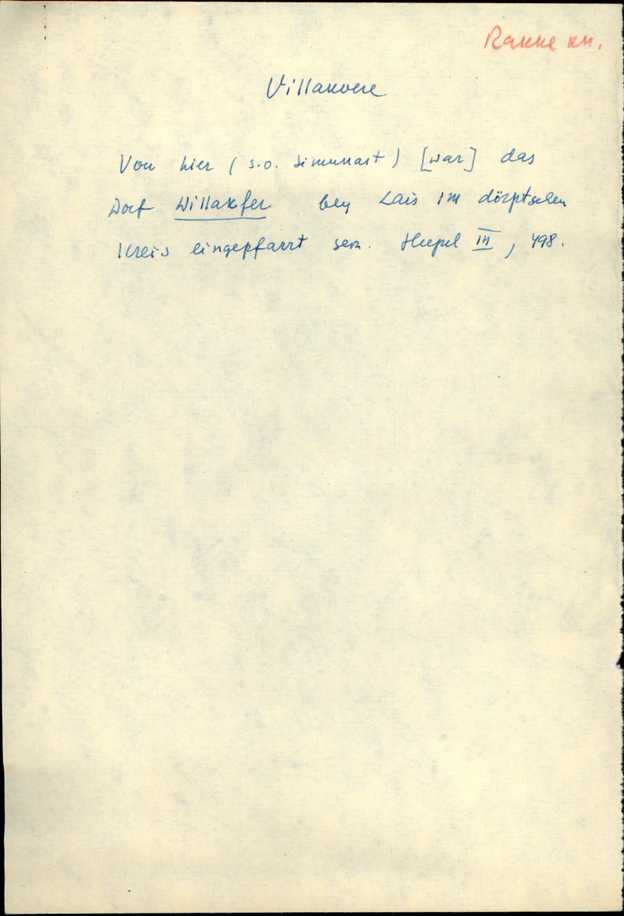 Rakke khk.
Villakvere
Von hier (s.o. Simunast) [war] das
Dorf Willakfer bey Lais im dörptschen
Kreis eingepfarrt sein. Hupel III, 498.